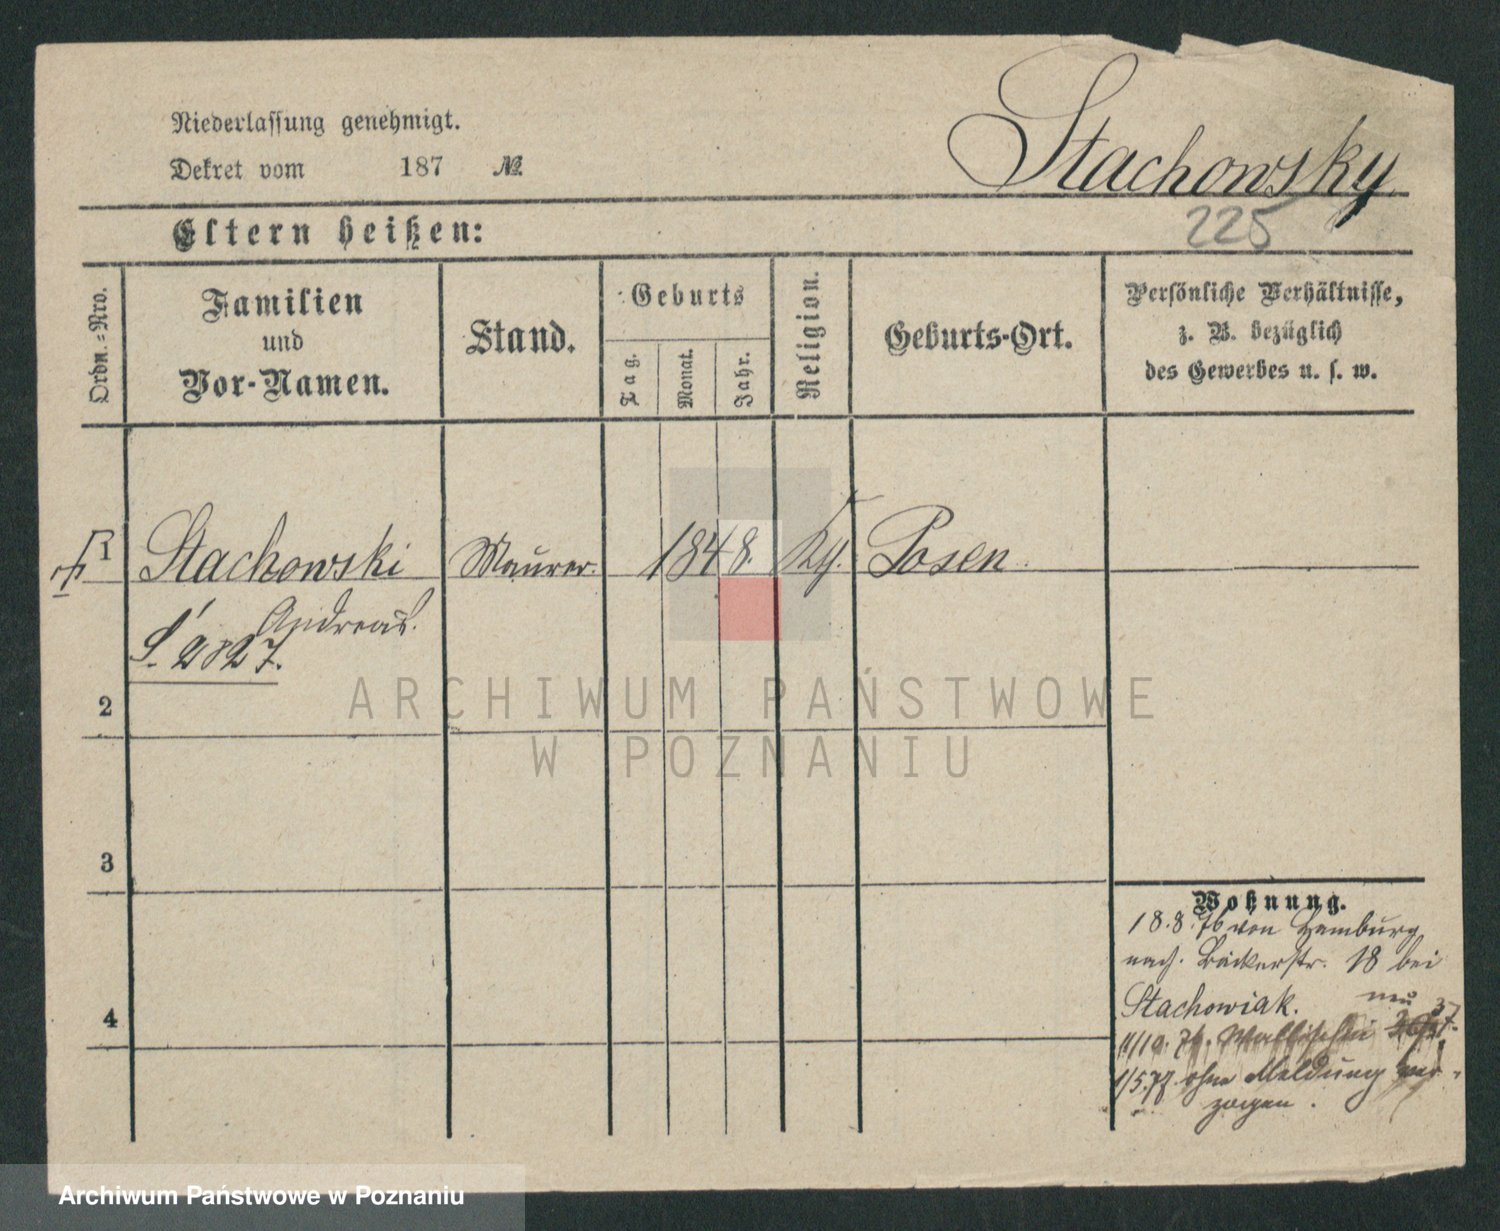 Niederlassung genehmigt.
Dekret vom 187 №
Stachowsky
225
Eltern heißen:
Ordn.=Nro.
Familien
und
Vor-Namen.
Stand.
Geburts
Tag.
Monat.
Jahr.
Religion.
Geburts-Ort.
Persönliche Verhältnisse,
z. B. bezüglich
des Gewerbes u. s. w.
1 Stachowski Maurer. 1848. Posen
Andreas.
S. 2827.
2
ARCHIWUM PAŃSTWOWE
W POZNANIU
3
4
Wohnung.
18.8.76 von Hamburg
nach. Bäckerstr. 18 bei
Stachowiak. neu
11/10. 76. Wallischei 37
1/5.77 ohne Meldung ver-
zogen.
Archiwum Państwowe w Poznaniu